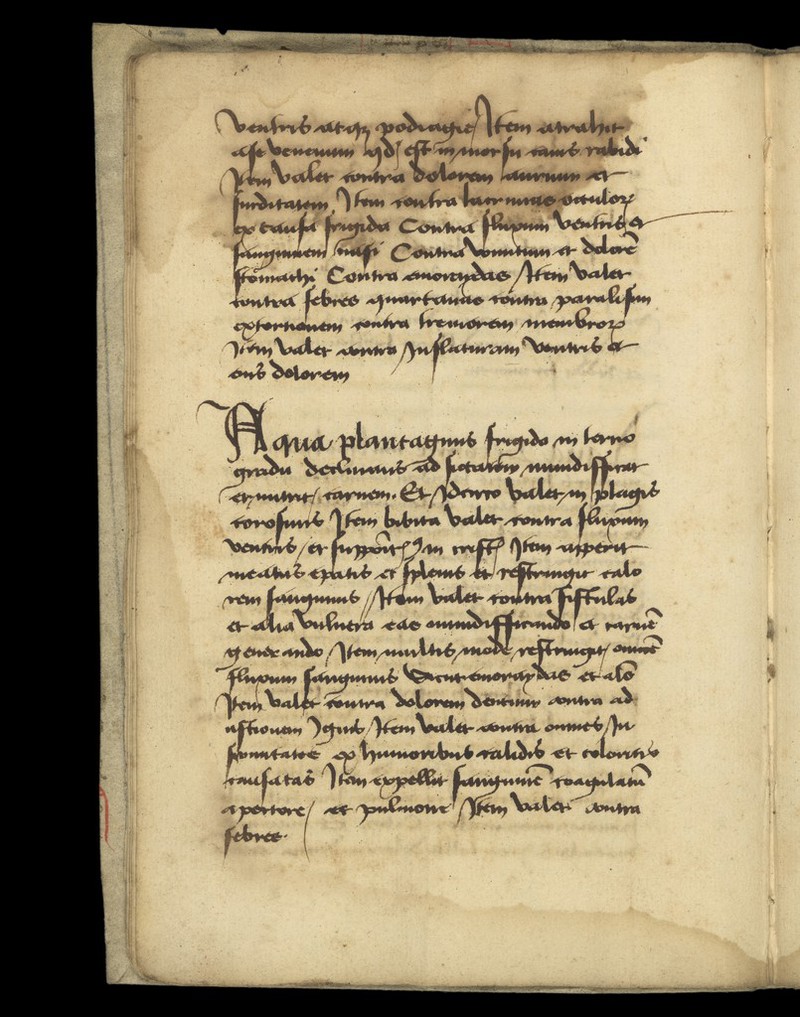 ventris atque podragie / Item atrahit
a se venenum qd est in morsu canis rabidi
Item valet contra dolorem aurium et
surditatem. Item contra lacrimas oculor
ex causa frigida Contra fluxum ventris et
sanguinem nasi Contra vomitum et dolorē
stomachi Contra emoroydas / Item valet
contra febres quartanas contra paralisim
extortionem contra tremorem membror
Item valet contra / Inflaturam ventris et
eius dolorem
Aqua plantaginis frigido in terno
gradu declinans ad siccitatem mundifficat
et nutrit / carnem. Et / Idcirco valet in plagis
corosiuis Item bibita valet contra fluxum
ventris / et in Item apperit
meatus epatis et splenis et restringit calo
rem sanguinis / Item valet contra fistulas
et alia vulnera eas mundifficando et carnē
generando / Item multis mode restringit / omnē
fluxum sanguinis Sicut emoraydas et alō
Item valet contra dolorem dentium contra ad
ustionem Ignis / Item valet contra omnes / In
firmitates ex humoribus calidis et colericis
causatas Item expellit sanguinē coagulatū
a pectore / et pulmone / Item valet contra
febres.